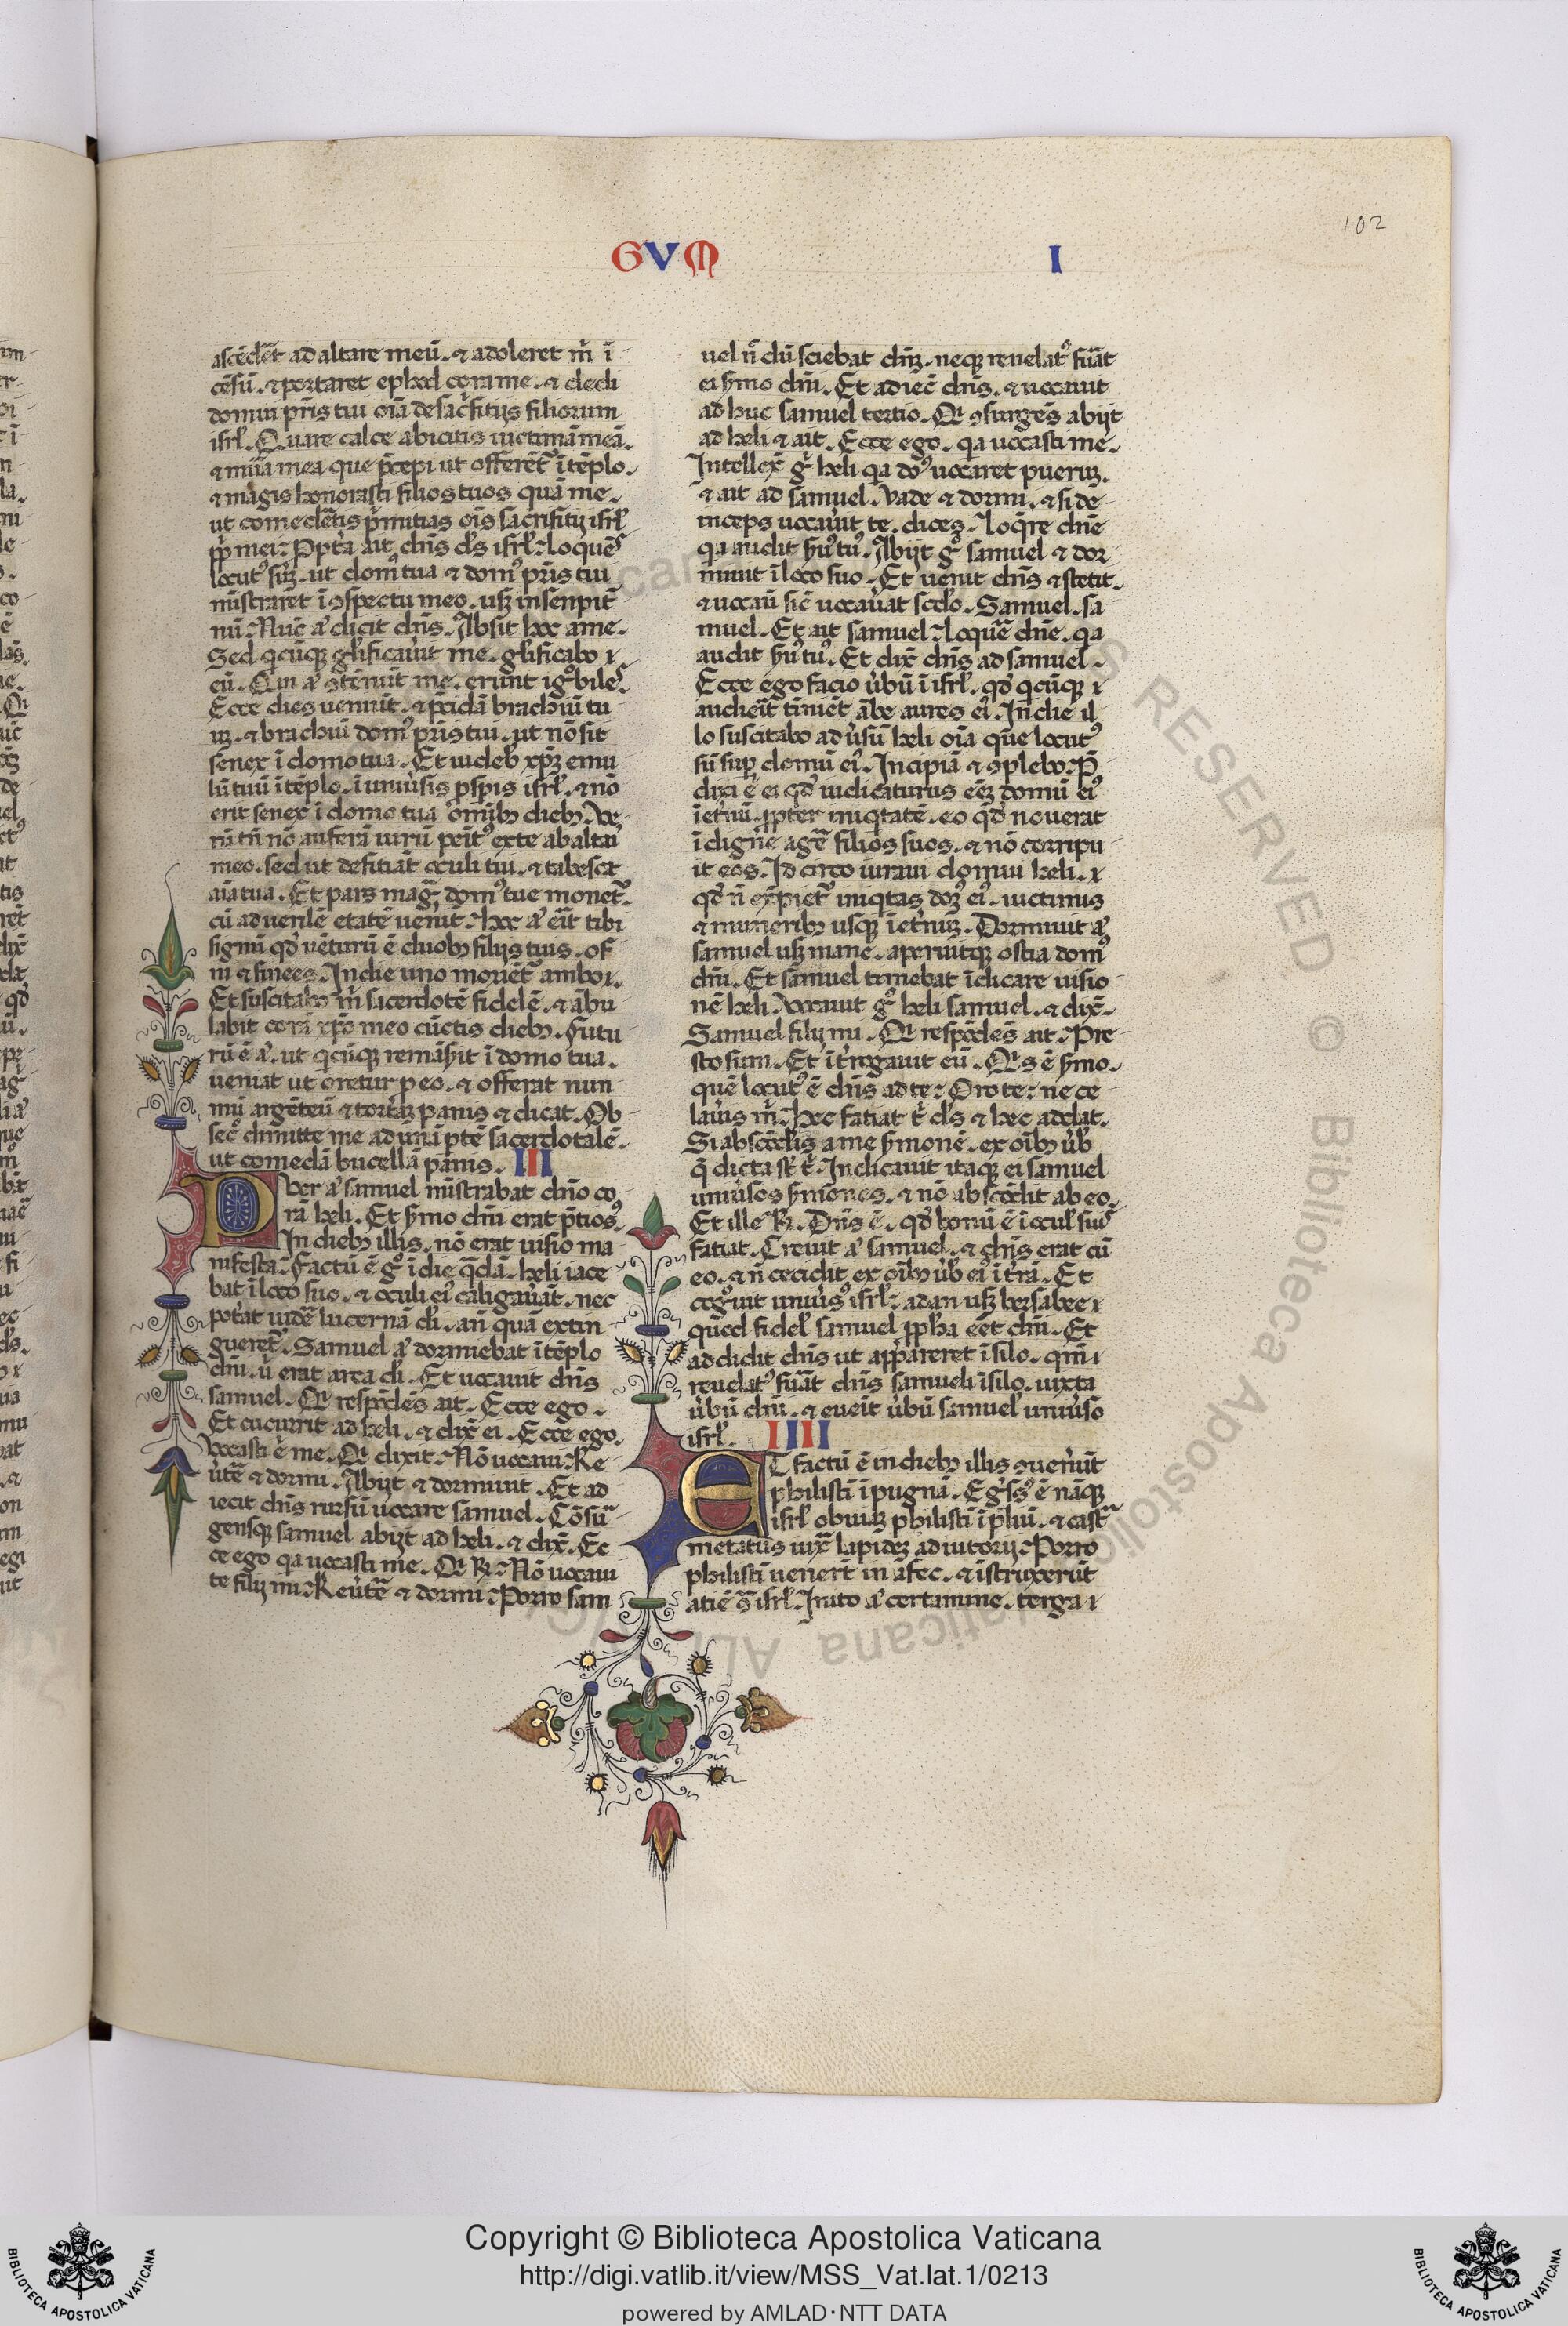 102
GVM I
ascēdēt ad altare meū. ⁊ adoleret m̄ ī
cēsū. ⁊ portaret ephod cora me. ⁊ dedi
domui pr̄is tui oīa de sac̄fitijs filiorum
isrl̄. Quare calce abicitis uictimā meā.
⁊ mūa mea que p̄cepi ut offerēt᷑ ī tēplo.
⁊ magis honorasti filios tuos quā me.
ut comedētis p̄mitias oīs sacrifitij isrl̄
pp̄ mei: Ppt̄a ait dn̄s ds̄ isrl̄: loquēs
locutꝰ sūꝫ. ut domꝰ tua ⁊ domꝰ pr̄is tui
mīstraret ī ꝯspectu meo. usꝫ in senpit̄
nū: Nūc aͣ dicit dn̄s. Absit hoc a me.
Sed qcūqꝫ gl̄ificauit me. gl̄ificabo ı
eū. Qui aͣ ꝯtēnūt me. erunt ıgᵒbiles.
Ecce dies ueniūt. ⁊ p̄cidā brachiū tu
uꝫ. ⁊ brachiū domꝰ pr̄is tui. ut nō sit
senex ī domo tua. Et uideb̄ xp̄ꝫ emu
lū tuū ī tēplo. ī uniūsis pspis isrl̄. ⁊ nō
erit senex ī domo tua omībꝫ diebꝫ. Ve
rū tn̄ nō auferā uirū peītꝰ ex te ab altaı
meo. sed ut defitiāt oculi tui. ⁊ tabescat
aīa tua. Et pars mag̃ domꝰ tue moriet᷑.
cū ad uenlē etatē uenit: Hoc aͣ eīt tibi
signū qd̄ uēturū ē duobꝫ filijs tuis. of
ni ⁊ finees. In die uno moriēt᷑ ambo ı.
Et suscitabo m̄ sacerdotē fidelē. ⁊ ābu
labit corā xp̄o meo cūctis diebꝫ. Futu
rū ē aͣ. ut qcūqꝫ remāsit ī domo tua.
ueniat ut oretur p eo. ⁊ offerat nun
mū argēteū ⁊ tortāꝫ panis ⁊ dicat. Ob
sec̄ dimitte me ad unā ptē sacerdotalē.
ut comedā bucellā panis. III
Pver aͣ samuel mīstrabat dn̄o co
rā heli. Et s̄mo dn̄i erat p̄tiosꝰ
In diebꝫ illis. nō erat uisio ma
nifesta: Factū ē gᵒ ī die q̄dā. heli iace
bat ī loco suo. ⁊ oculi eiꝰ caligauāt. nec
potat uidē lucernā di᷑. an̄ quā extin
gueret᷑. Samuel aͣ dormiebat ī tēplo
dn̄i. u᷑ erat arca di᷑. Et uocauit dn̄s
samuel. Qi respōdēs ait. Ecce ego.
Et cucurrit ad heli. ⁊ dix̄ ei. Ecce ego.
Vocasti ē me. Qi dixit: Nō uocaui: Re
ūtē ⁊ dormi. Abijt ⁊ dormiuit. Et ad
iecit dn̄s rursū uocare samuel. Cōsū
gensqꝫ samuel abijt ad heli. ⁊ dix̄. Ec
ce ego qa uocasti me. Qi R̄: Nō uocaui
te fili mi: Reūtē ⁊ dormi: Porro sam
uel n̄ dū sciebat dn̄ꝫ. neqꝫ reuelatꝰ fūāt
ei s̄mo dn̄i. Et adiec̄ dn̄s. ⁊ uocauit
ad huc samuel tertio. Qi ꝯsurgēs abijt
ad heli ⁊ ait. Ecce ego. qa uocasti me.
Intellex̄ gͥ heli qa doꝰ uocaret pueruꝫ.
⁊ ait ad samuel. Vade ⁊ dormi. ⁊ si de
inceps uocaūit te. dices. loq̄re dn̄e
qa audit s̄uꝰ tuꝰ. Abijt gᵒ samuel ⁊ dor
miuit ī loco suo. Et uenit dn̄s ⁊ stetit.
⁊ uocaū sic̄ uocaūat scd̄o. Samuel. sa
muel. Et ait samuel: loquē dn̄e. qa
audit s̄uꝰ tuꝰ. Et dix̄ dn̄s ad samuel.
Ecce ego facio ūbū ī isrl̄. qd̄ qcūqꝫ ı
audieīt tīniēt ābe aures eiꝰ. In die il
lo suscitabo ad ūsū heli oīa que locutꝰ
sū sup domū eiꝰ. Incipiā ⁊ ꝯplebo: P̄
dixi ē ei qd̄ iudicaturus eēꝫ domū eiꝰ
ī et̄nū. ꝓpter iniqtatē. eo qd̄ nouerat
īdigne agē filios suos. ⁊ nō corripu
it eos. Id circo iuraui domui heli. ı
qd̄ n̄ expiet᷑ iniqtas doꝫ eiꝰ. uictimis
⁊ muneribꝫ usqꝫ ī et̄nuꝫ. Dormiuit aͣ
samuel usꝫ mane. aperuitqꝫ ostia domꝰ
dn̄i. Et samuel timebat īdicare uisio
nē heli. Vocauit gᵒ heli samuel. ⁊ dix̄.
Samuel fili mi. Qi respōdēs ait: Pre
sto sum. Et īt̄rogauit eū. Qis ē s̄mo.
quē locutꝰ ē dn̄s ad te: Oro te: ne ce
lauis m̄: Hec fatiat t̄ ds̄ ⁊ hec addat.
Si abscōdis a me s̄monē. ex oībꝫ ūb̄
q̄ dicta st̄ t̄. Indicauit itaqꝫ ei samuel
uniūsos s̄mones. ⁊ nō abscōdit ab eo.
Et ille R̄. Dn̄s ē. qd̄ bonū ē ī ocul̄ suis
fatiat. Creuit aͣ samuel. ⁊ dn̄s erat cū
eo. ⁊ n̄ cecidit ex oībꝫ ūb̄ eiꝰ ī t̄rā. Et
cogᵒuit uniūsꝰ isrl̄: a dan usꝫ bersabee ı
quod fidel̄ samuel pp̄ha eēt dn̄i. Et
addidit dn̄s ut appareret ī silo. qm̄ ı
reuelatꝰ fūāt dn̄s samueli ī silo. iuxta
ūbū dn̄i. ⁊ eueīt ūbū samuel uniūso
isrl̄. IIII
ET factū ē in diebꝫ illis ꝯuenūt
philistī ī pugnā. Eḡsꝰ ē nāqꝫ
isrl̄ obuiaꝫ philistī ī p̄liū. ⁊ cast᷑
metatus iux̄ lapideꝫ adiutorij: Porro
philistī uenert̄ in afec. ⁊ īstruxerūt
atiē ꝯͣ isrl̄: Inito aͣ certamine. terga ı
Copyright © Biblioteca Apostolica Vaticana
http://digi.vatlib.it/view/MSS_Vat.lat.1/0213
powered by AMLAD·NTT DATA
BIBLIOTECA APOSTOLICA VATICANA
BIBLIOTECA APOSTOLICA VATICANA